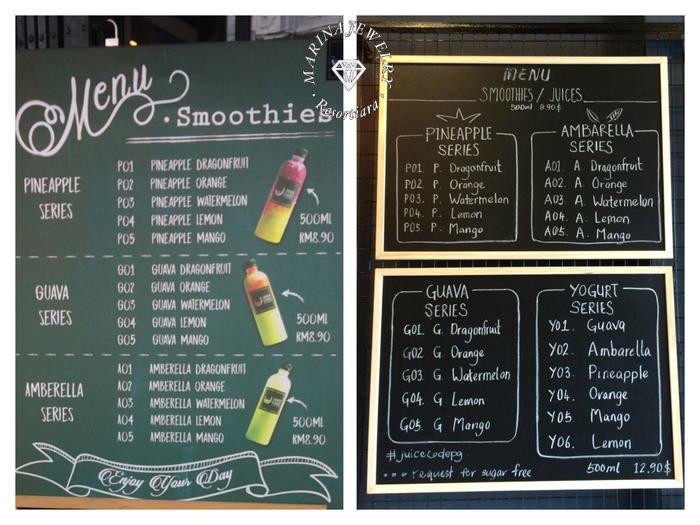 MARINA JEWELRY
Resortiara
Menu
.Smoothies
PINEAPPLE
SERIES
P01 PINEAPPLE DRAGONFRUIT
P02 PINEAPPLE ORANGE
P03 PINEAPPLE WATERMELON
P04 PINEAPPLE LEMON
P05 PINEAPPLE MANGO
500ML
RM8.90
GUAVA
SERIES
G01 GUAVA DRAGONFRUIT
G02 GUAVA ORANGE
G03 GUAVA WATERMELON
G04 GUAVA LEMON
G05 GUAVA MANGO
500ML
RM8.90
AMBERELLA
SERIES
A01 AMBERELLA DRAGONFRUIT
A02 AMBERELLA ORANGE
A03 AMBERELLA WATERMELON
A04 AMBERELLA LEMON
A05 AMBERELLA MANGO
500ML
RM8.90
Enjoy Your Day
MENU
SMOOTHIES / JUICES
500ml 8.90$
PINEAPPLE
SERIES
P01. P. Dragonfruit
P02 P. Orange
P03. P. Watermelon
P04. P. Lemon
P05. P. Mango
AMBARELLA
SERIES
A01. A. Dragonfruit
A02. A. Orange
A03 A. Watermelon
A04. A. Lemon
A05. A. Mango
GUAVA
SERIES
G01. G. Dragonfruit
G02 G. Orange
G03. G. Watermelon
G04. G Lemon
G05. G Mango
YOGURT
SERIES
Y01. Guava
Y02. Ambarella
Y03. Pineapple
Y04. Orange
Y05. Mango
Y06. Lemon
#juicecodepg
*** request for sugar free
500ml 12.90$